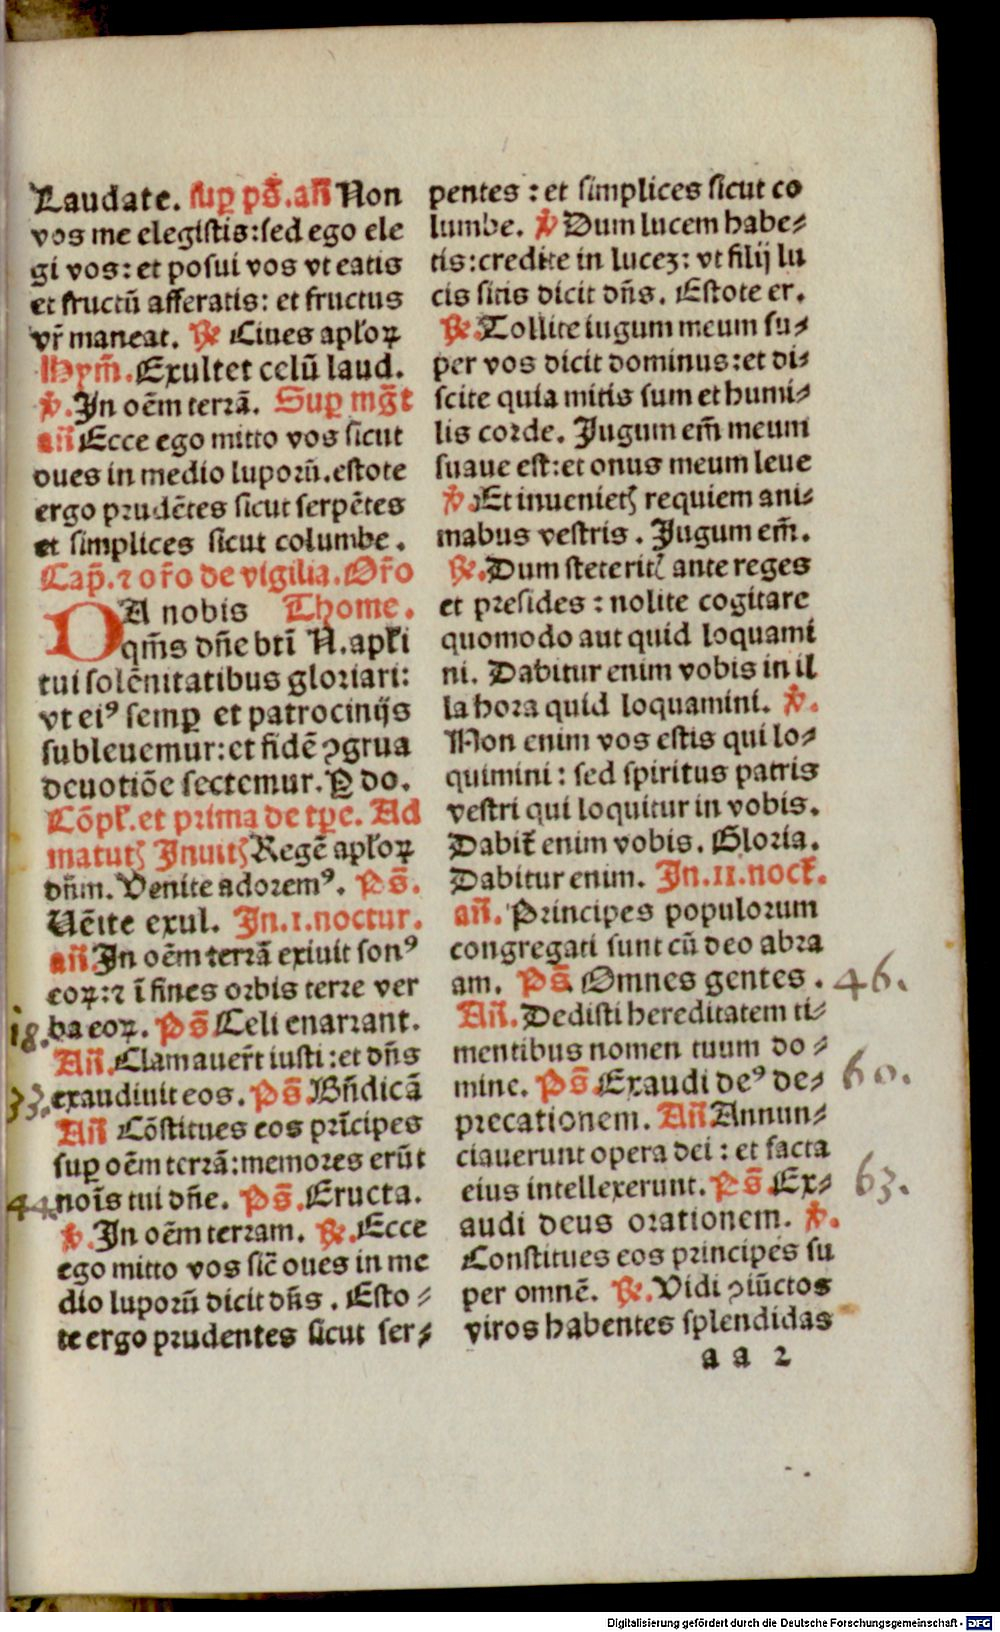 Laudate. sup ps̄. an̄ Non
vos me elegistis: sed ego ele
gi vos: et posui vos vt eatis
et fructū afferatis: et fructus
vr̄ maneat. ℟ Ciues apl'oꝝ
Hym̄. Exultet celū laud.
℣. In oēm terrā. Sup mg̅t
an̄ Ecce ego mitto vos sicut
oues in medio luporū. estote
ergo prudētes sicut serpētes
et simplices sicut columbe.
Cap̄. ⁊ or̄o de vigilia. Or̄o
DA nobis Thome.
qm̄s dn̄e bti̅ N. apl'i
tui solēnitatibus gloriari:
vt eiꝰ semꝑ et patrocinijs
subleuemur: et fidē ꝯgrua
deuotiōe sectemur. Ꝑ do.
Cōpl'. et prima de tꝑe. Ad
matutꝭ Inuitꝭ Regē apl'oꝝ
dn̄m. Venite adoremꝰ. Ps̄.
Uēite exul. In .I. noctur.
an̄. In oēm terrā exiuit sonꝰ
eoꝝ: ⁊ ī fines orbis terre ver
18. ba eoꝝ. Ps̄. Celi enarrant.
An̄. Clamauer̄t iusti: et dn̄s
33. exaudiuit eos. Ps̄. Bn̄dicā
An̄ Cōstitues eos prīcipes
sup oēm terrā: memores erūt
44. noīs tui dn̄e. Ps̄. Eructa.
℣. In oēm terram. ℟. Ecce
ego mitto vos sic̄ oues in me
dio luporū dicit dn̄s. Esto⸗
te ergo prudentes sicut ser⸗
pentes: et simplices sicut co
lumbe. ℣ Dum lucem habe⸗
tis: credite in luceꝫ: vt filij lu
cis sitis dicit dn̄s. Estote er.
℟. Tollite iugum meum su⸗
per vos dicit dominus: et di⸗
scite quia mitis sum et humi⸗
lis corde. Jugum em̄ meum
suaue est: et onus meum leue
℣. Et inuenietꝭ requiem ani⸗
mabus vestris. Jugum em̄.
℟. Dum steteritꝭ ante reges
et presides: nolite cogitare
quomodo aut quid loquami
ni. Dabitur enim vobis in il
la hora quid loquamini. ℣.
Non enim vos estis qui lo⸗
quimini: sed spiritus patris
vestri qui loquitur in vobis.
Dabit̄ enim vobis. Gloria.
Dabitur enim. In .II. noct'.
an̄. Principes populorum
congregati sunt cū deo abra
am. Ps̄. Omnes gentes. 46.
An̄. Dedisti hereditatem ti⸗
mentibus nomen tuum do⸗
mine. Ps̄. Exaudi deꝰ de⸗ 60.
precationem. An̄ Annun⸗
ciauerunt opera dei: et facta
eius intellexerunt. Ps̄. Ex⸗ 63.
audi deus orationem. ℣.
Constitues eos principes su
per omnē. ℟. Vidi ꝯiūctos
viros habentes splendidas
a a 2
Digitalisierung gefördert durch die Deutsche Forschungsgemeinschaft - DFG